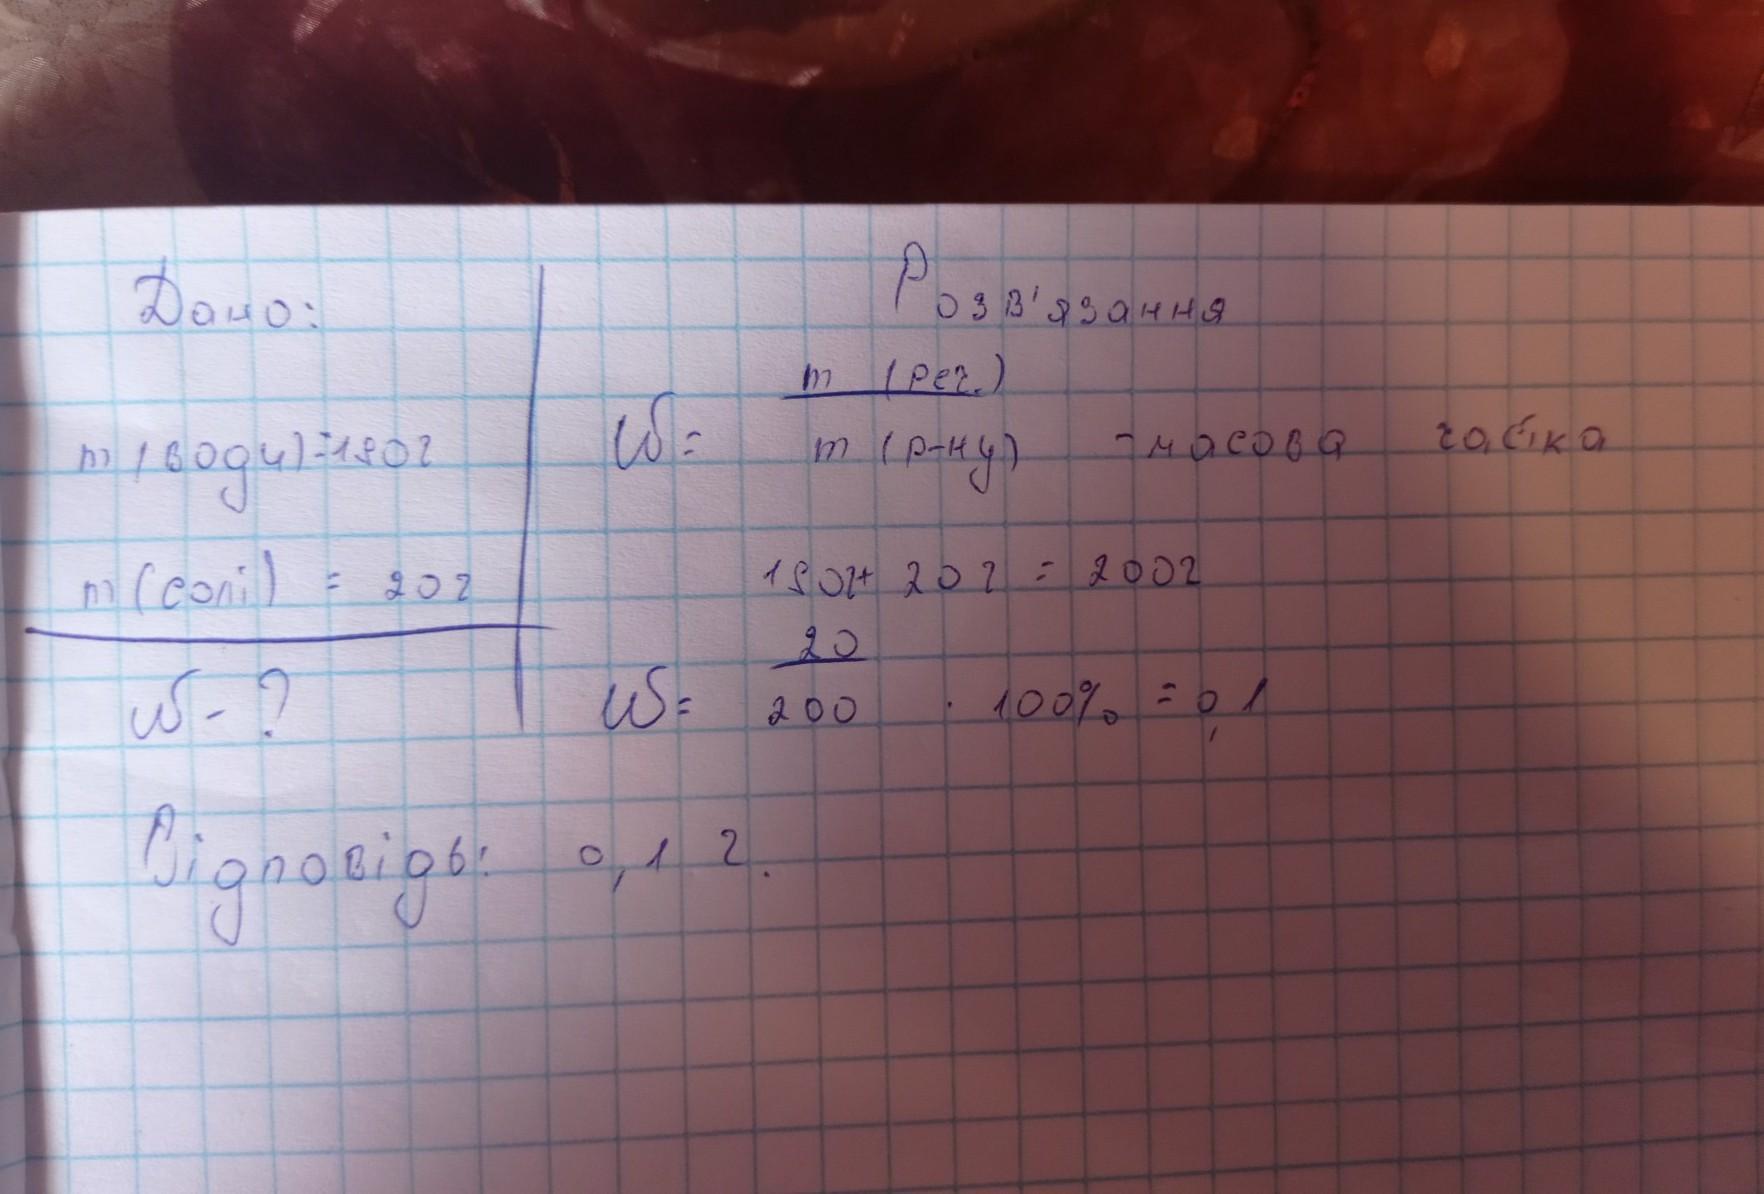 Дано:
m(води)=180г
m(солі) = 20г
W - ?
Розв'язання
m (реч.)
W = m (р-ну) - масова частка
180г+ 20г = 200г
20
W = 200 · 100% = 0,1
Відповідь: 0,1 г.